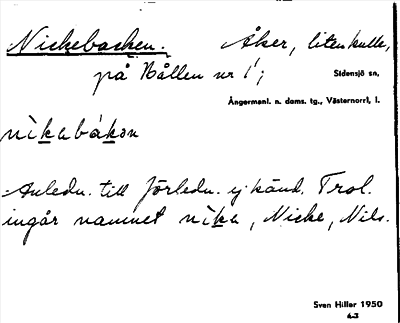 Nickebacken. Åker, liten kulle,
på Hållen nr 1';
Sidensjö sn,
Ångermanl. n. doms. tg., Västernorrl, l.
nìkabákan
Anledn. till förledn. ej känd. Trol.
ingår namnet nìka, Nicke, Nils.
Sven Hiller 1950